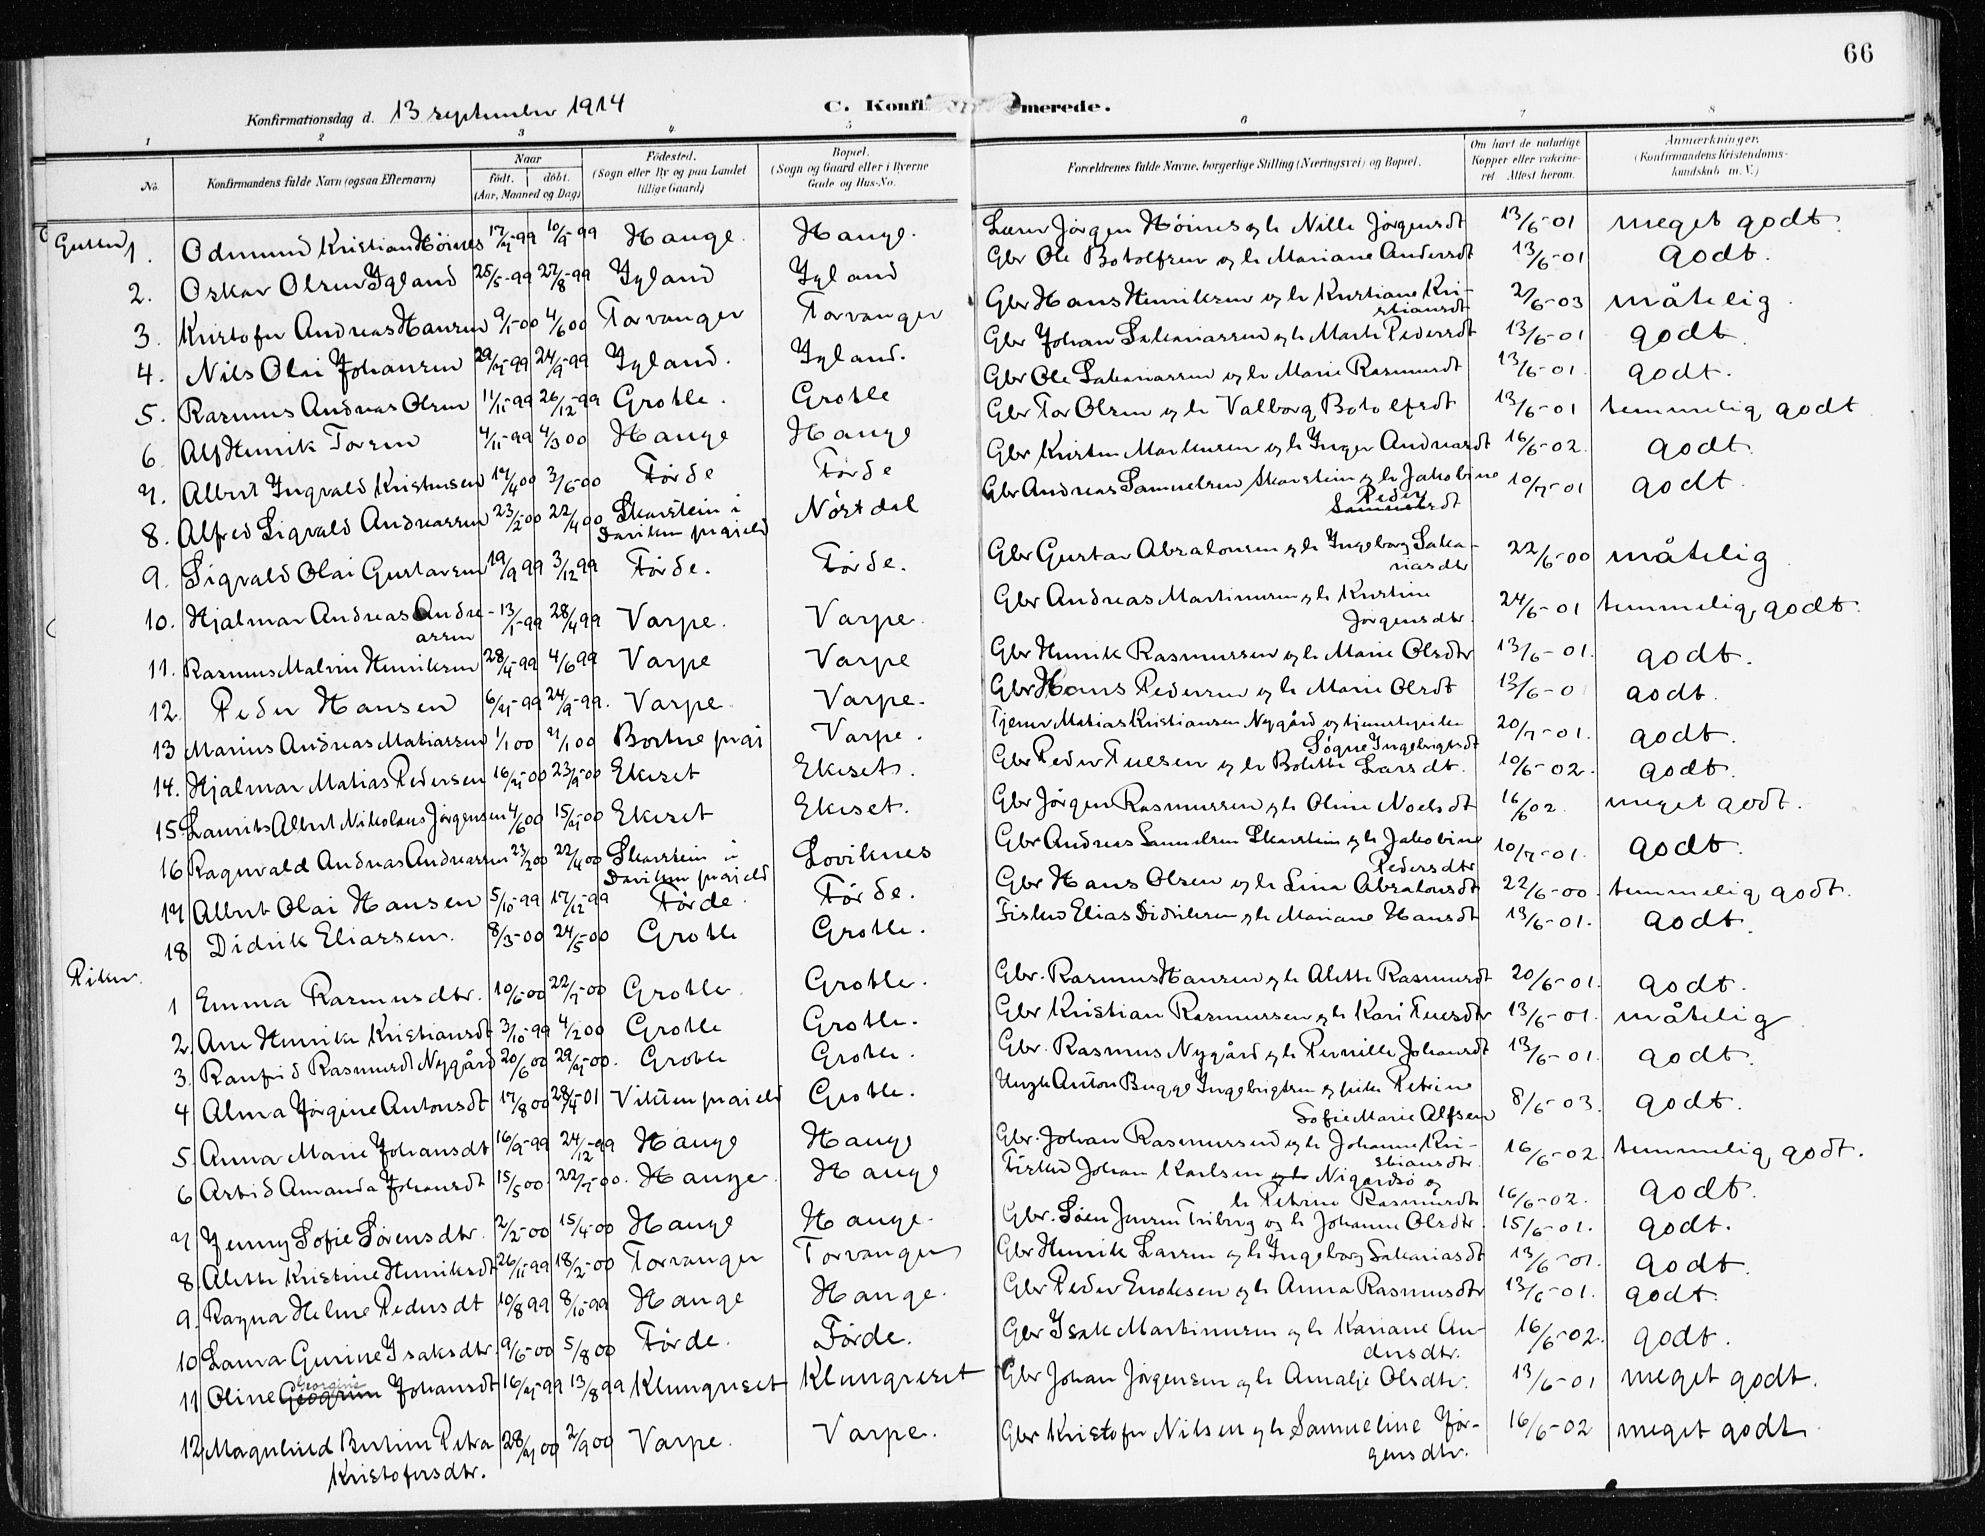 66
Konfirmationsdag d. 13 september 1914
C. Konfirmerede.
1 2 3 4 5 6 7 8
No. Konfirmandens fulde Navn (ogsaa Efternavn) Naar født. døbt. (Aar, Maaned og Dag) Fødested. (Sogn eller By og paa Landet tillige Gaard) Bopæl. (Sogn og Gaard eller i Byerne Gade og Hus-No. Forældrenes fulde Navne, borgerlige Stilling (Næringsvei) og Bopæl. Om havt de naturlige Kopper eller vakcineret Attest herom. Anmærkninger. (Konfirmandens Kristendomskundskab m. V.)
Gutter 1. Odmund Kristian Hóines 17/7-99 10/9-99 Hauge. Hauge. Lærer Jørgen Hóines og h Nille Jørgensdt 13/6-01 meget godt.
2. Oskar Olsen Igland 25/5-99 27/8-99 Igland Igland Gbr Ole Botolfsen og h Mariane Andersdt 13/6-01 godt.
3. Kristofer Andreas Hansen 9/1-00 4/6 00 Torvanger Torvanger Gbr Hans Henriksen og h Kristiane Kri-
stiansdt 2/6-03 måtelig.
4. Nils Olai Johansen 29/7-99 24/9-99 Igland. Igland. Gbr Johan Sakariassen og h Marte Pedersdt 13/6-01 godt.
5. Rasmus Andreas Olsen 11/11-99 26/12-99 Grotle. Grotle Gbr Ole Sakariassen og h Marie Rasmusdt 13/6-01. godt.
6 Alf Henrik Torsen 4/11-99 4/3 00 Hauge Hauge Gbr Tor Olsen og h Valborg Botolfsdt 13/6-01 temmelig godt
7. Albert Ingvald Kristensen 17/4 00 3/6-00 Førde Førde Gbr Kristen Markusen og h Inger Andreasdt 16/6-02. godt.
8. Alfred Sigvald Andreassen 23/2-00 22/4 00 Skarstein i
Daviken prgjeld Nórdal Gbr Andreas Samuelsen Skarstein og h Jakobine
Peder
Samuelsdt 10/7-01 godt.
9. Sigvald Olai Gustavsen 19/9 99 3/12 99 Førde. Førde. Gbr Gustav Absalonsen og h Ingeborg Saka-
riasdtr 22/6-00 måtelig
10. Hjalmar Andreas Andre-
assen 13/1-99 28/4 99 Varpe. Varpe. Gbr Andreas Martinusen og h Kristine
Jørgensdtr. 24/6-01 temmelig godt.
11. Rasmus Malvin Henriksen 28/4-99 4/6 99 Varpe Varpe Gbr Henrik Rasmussen og h Marie Olsdtr 13/6-01. godt.
12. Peder Hansen 6/7-99 24/9-99. Varpe. Varpe. Gbr Hans Pedersen og h Marie Olsdt 13/6-01 godt.
13 Marius Andreas Matiassen 1/1 00 21/1 00 Bortne prgj Varpe. Tjener Matias Kristiansen Nygård og tjenestepike
Søgne Ingebrigtsdt 20/7-01. godt.
14. Hjalmar Matias Pedersen 16/7-00 23/9-00 Ekeset Ekeset. Gbr Peder Tuesen og h Bolette Larsdt. 10/6-02. godt.
15. Laurits Albert Nikolaus Jørgensen 4/6 00 15/7-00 Ekeset Ekeset. Gbr Jørgen Rasmussen og h Oline Noelsdt 16/6 02. meget godt.
16 Ragnvald Andreas Andreassen 23/2 00 22/4 00 Skarstein i
Daviken prgjeld Loviknes Gbr Andreas Samuelsen Skarstein og h Jakobine
Pedersdtr 10/7-01. godt.
17 Albert Olai Hansen 5/10-99 17/12-99 Førde. Førde. Gbr Hans Olsen og h Lina Absalonsdt 22/6-00. temmelig godt.
18 Didrik Eliassen. 8/3-00 24/5-00 Grotle Grotle. Fisker Elias Didriksen og h Mariane Hansdt 13/6-01. Godt.
Piker.
1 Emma Rasmusdtr. 10/6-00 22/7-00 Grotle. Grotle. Gbr. Rasmus Hansen og h Alette Rasmusdt 20/6-01. godt.
2. Ane Henrike Kristiansdt 3/10-99 4/2 00 Grotle Grotle. Gbr Kristian Rasmussen og h Kari Tuesdtr 13/6-01. måtelig
3. Ranfrid Rasmusdt Nygård 20/6 00 29/7-00. Grotle Grotle. Gbr. Rasmus Nygård og h Pernille Johansdt 13/6-01. godt.
4 Alma Jørgine Antonsdt 17/8 00 28/4-01 Vikten prgjeld Grotle. Ungk Anton Bugge Ingebrigtsen og pike Petrine
Sofie Marie Alfsen 8/6-03. godt.
5. Anna Marie Johansdt 16/9-99 24/12-99 Hauge Hauge Gbr. Johan Rasmussen og h Johanne Kri-
stiansdtr. 16/6-02. temmelig godt.
6 Astrid Amanda Johansdt 15/5 00. 22/7-00. Hauge. Hauge Fisker Johan Karlsen og h Nigardsø og
h Petrine Rasmusdtr 16/6-02. godt.
7 Jenny Sofie Sørensdtr. 2/2-00 15/4-00 Hauge Hauge. Gbr. Søen Jensen Friberg og h Johanne Olsdtr. 15/6-01. godt.
8. Alette Kristine Henriksdt 26/11-99 18/2-00 Torvanger Torvanger Gbr Henrik Larsen og h Ingeborg Sakariasdt 13/6-01. godt.
9. Ragna Helene Pedersdt 10/8 99 8/10-99 Hauge Hauge. Gbr Peder Enoksen og h Anna Rasmusdtr 13/6-01. godt.
10 Laura Gurine Isaksdtr. 9/6-00 5/8 00 Førde. Førde. Gbr Isak Martinusen og h Kariane An-
dersdtr. 16/6-02. godt.
Georgine
11 Oline Georgine Johansdt 16/7-99 13/8 99 Klungreset Klungreset Gbr Johan Jørgensen og h Amalje Olsdtr. 13/6-01 meget godt.
12 Magnhild Bertine Petra
Kristofersdtr. 28/7 00 2/9 00 Varpe. Varpe. Gbr Kristofer Nilsen og h Samueline Jør-
gensdtr. 16/6-02 meget godt.